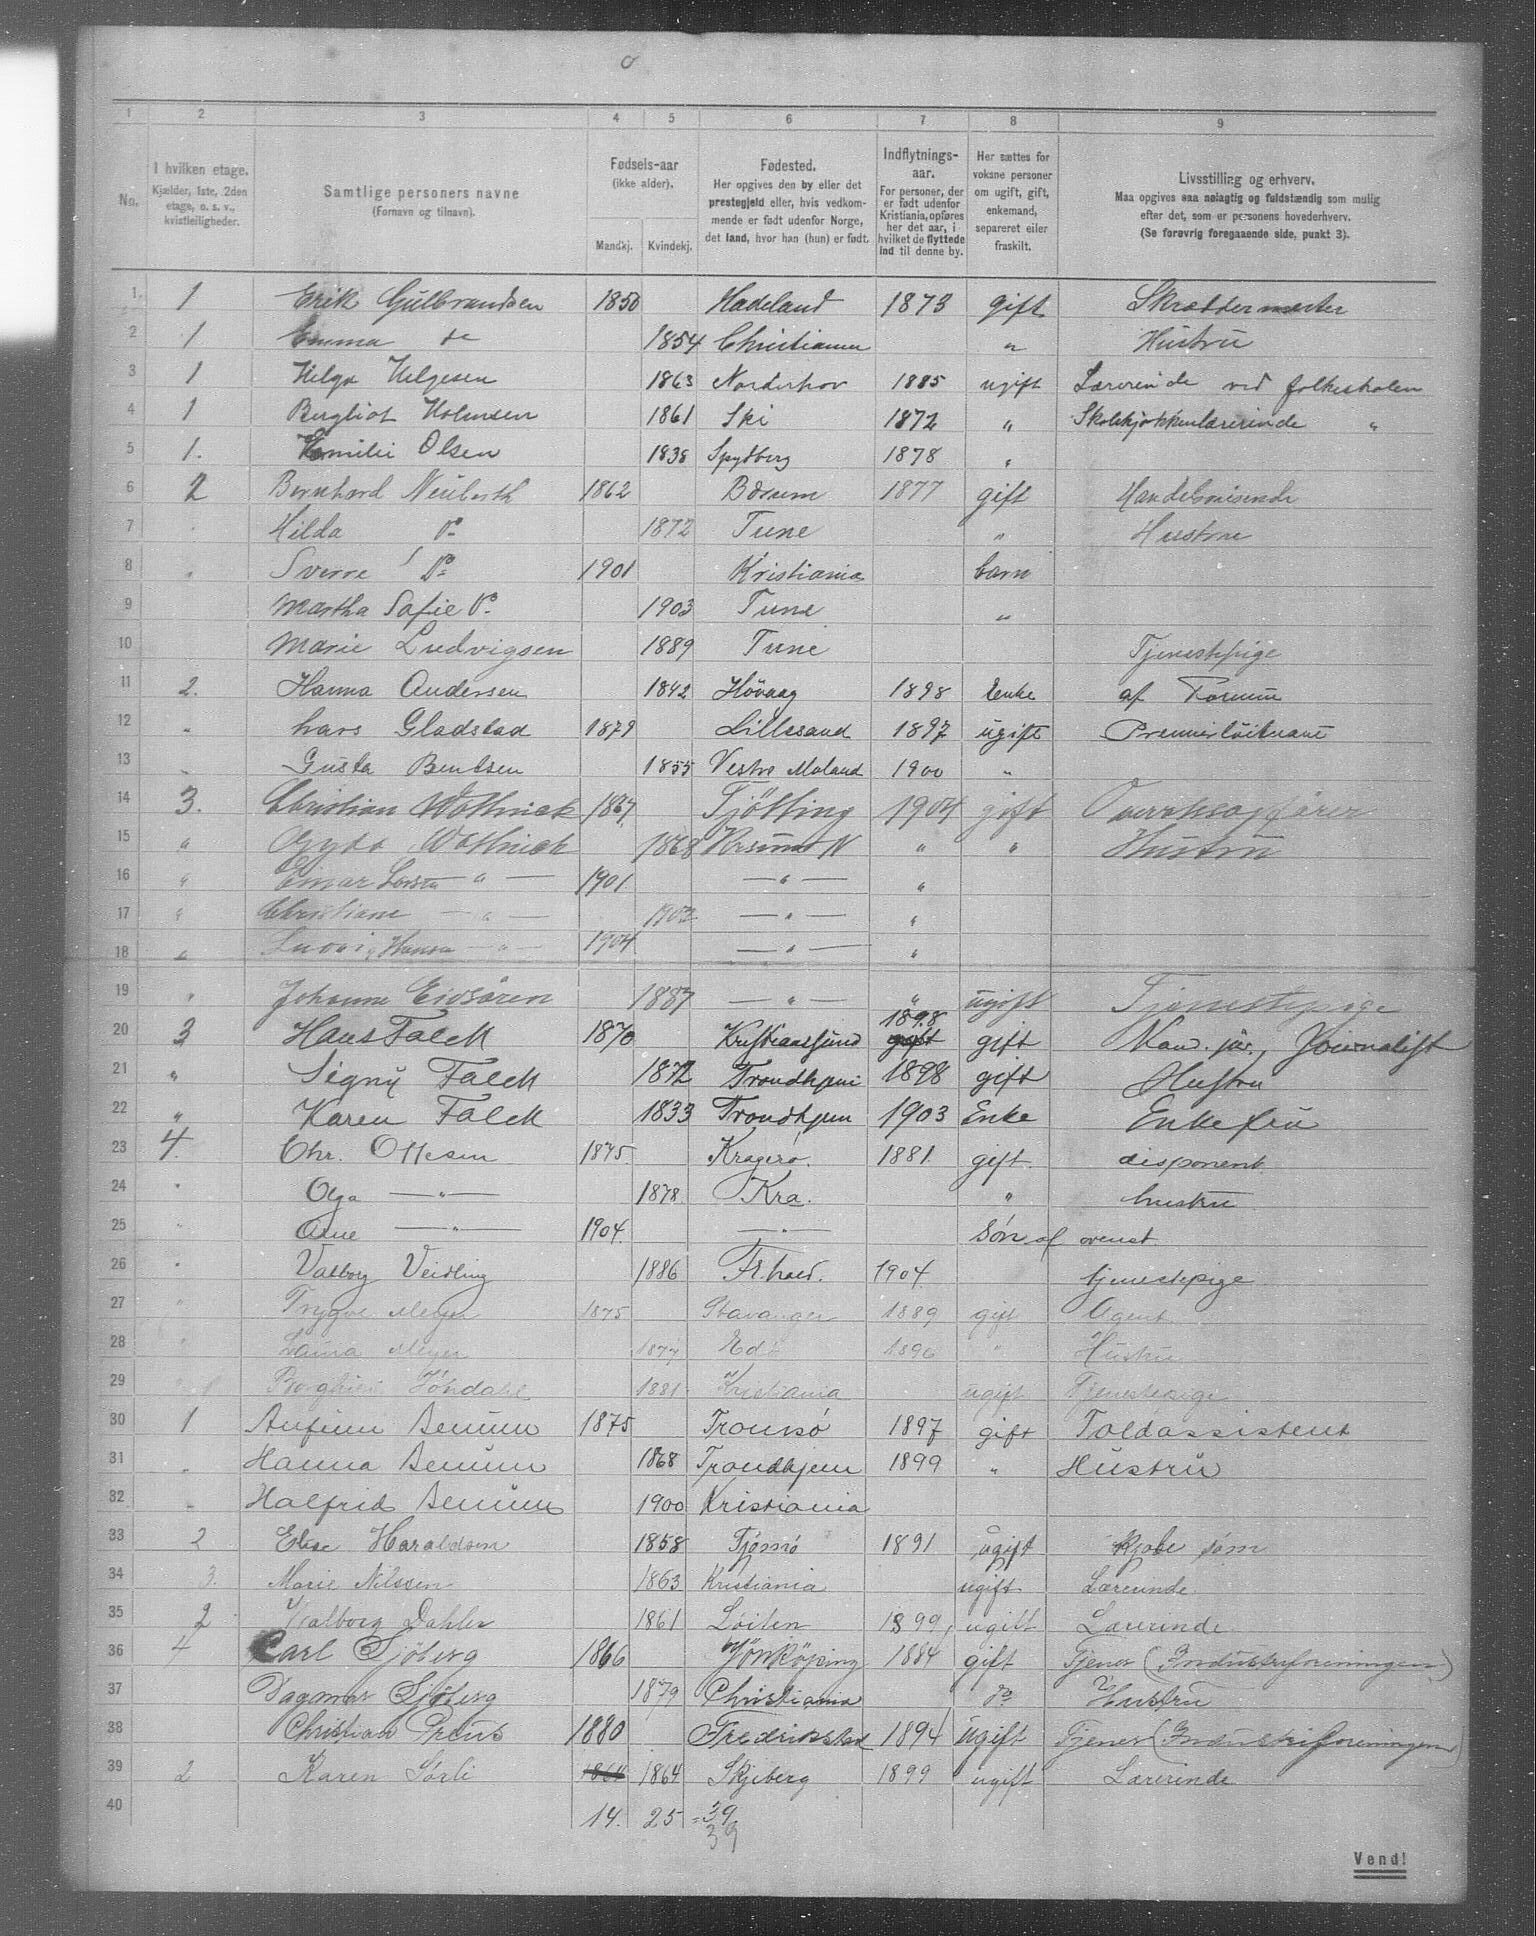 1 2 3 4 5 6 7 8 9
No. I hvilken etage. Kjælder, 1ste, 2den etage, o. s. v., kvistleiligheder.
Samtlige personers navne (Fornavn og tilnavn).
Fødsels-aar (ikke alder). Mandkj. Kvindekj.
Fødested. Her opgives den by eller det prestegjeld eller, hvis vedkommende er født udenfor Norge, det land, hvor han (hun) er født.
Indflytnings-aar. For personer, der er født udenfor Kristiania, opføres her det aar, i hvilket de flyttede ind til denne by.
Her sættes for voksne personer om ugift, gift, enkemand, separeret eller fraskilt.
Livsstilling og erhverv. Maa opgives saa nøiagtig og fuldstændig som mulig efter det, som er personens hovederhverv. (Se forøvrig foregaaende side, punkt 3).
1 1 Erik Gulbrandsen 1850 Hadeland 1873 gift Skræddermester
2 1 Emma do 1854 Christiania " Hustru
3 1 Helga Helgesen 1863 Norderhov 1885 ugift Lærerinde ved folkeskolen
4 1 Bergliot Holmsen 1861 Ski 1872 " Skolekjøkkenlærerinde "
5 1. Emilie Olsen 1838 Spydberg 1878 "
6 2 Bernhard Neuberth 1862 Bærum 1877 gift Handelsreisende
7 Hilda Do 1872 Tune " Hustru
8 " Sverre Do 1901 Kristiania barn
9 Martha Sofie Do 1903 Tune "
10 Marie Ludvigsen 1889 Tune Tjenestepige
11 2. Hanna Andersen 1842 Høvaag 1898 Enke af Formue
12 " Lars Gladstad 1879 Lillesand 1897 ugift Premierløitnant
13 " Gusta Bentsen 1855 Vestre Moland 1900 "
14 3. Christian Wothnick 1867 Tjøtting 1904 gift Overretssagfører
15 " Wothnick 1868 Krsund N " " Hustru
16 " Einar — " — 1901 — " — "
17 " Christiane — " — 1902 — " — "
18 " Hansa — " — 1904 — " — "
19 " Johanne Eidsøren 1887 — " — " ugift Tjenestepige
20 3 Hans Falck 1870 Kristianssund 1898 gift Kand. jur., Journalist
21 " Signy Falck 1872 Trondhjem 1898 gift Hustru
22 " Karen Falck 1833 Trondhjem 1903 Enke Enkefru
23 4. Chr. Ottesen 1875. Kragerø. 1881 gift. disponent.
24 " Olga — " — 1878. Kra. " hustru
25 " Arne — " — 1904. — " — Søn af ovenst.
26 " Valborg Veidling 1886 Fr.hald. 1904. tjenestepige
27 " Trygve Meyer 1875 Stavanger 1889 gift Agent
28 " Laura Meyer 1877 1896 " Hustru
29 " Borghild 1881 Kristiania ugift Tjenestepige
30 1 Anfinn Benum 1875 Tromsø 1897 gift Toldassistent
31 " Hanna Benum 1868 Trondhjem 1899 " Hustru
32 " Halfrid Benum 1900 Kristiania
33 2 Elise Haraldsen 1858 Tjømø 1891 ugift Kjole søm
34 3. Marie Nilssen 1863 Kristiania ugift Lærerinde
35 2 Valborg Dahler 1861 Løiten 1899 ugift Lærerinde
36 4 Carl Sjöberg 1866 Jönköping 1884 gift Tjener (Industriforeningen)
37 Dagmar Sjöberg 1879 Christiania do Hustru
38 Christian Preus 1880 Fredrikstad 1894 ugift Tjener (Industriforeningen)
39 2 Karen Sørli 1864 1864 Skjeberg 1899 ugift Lærerinde
40 14. 25 = 39
39
Vend!